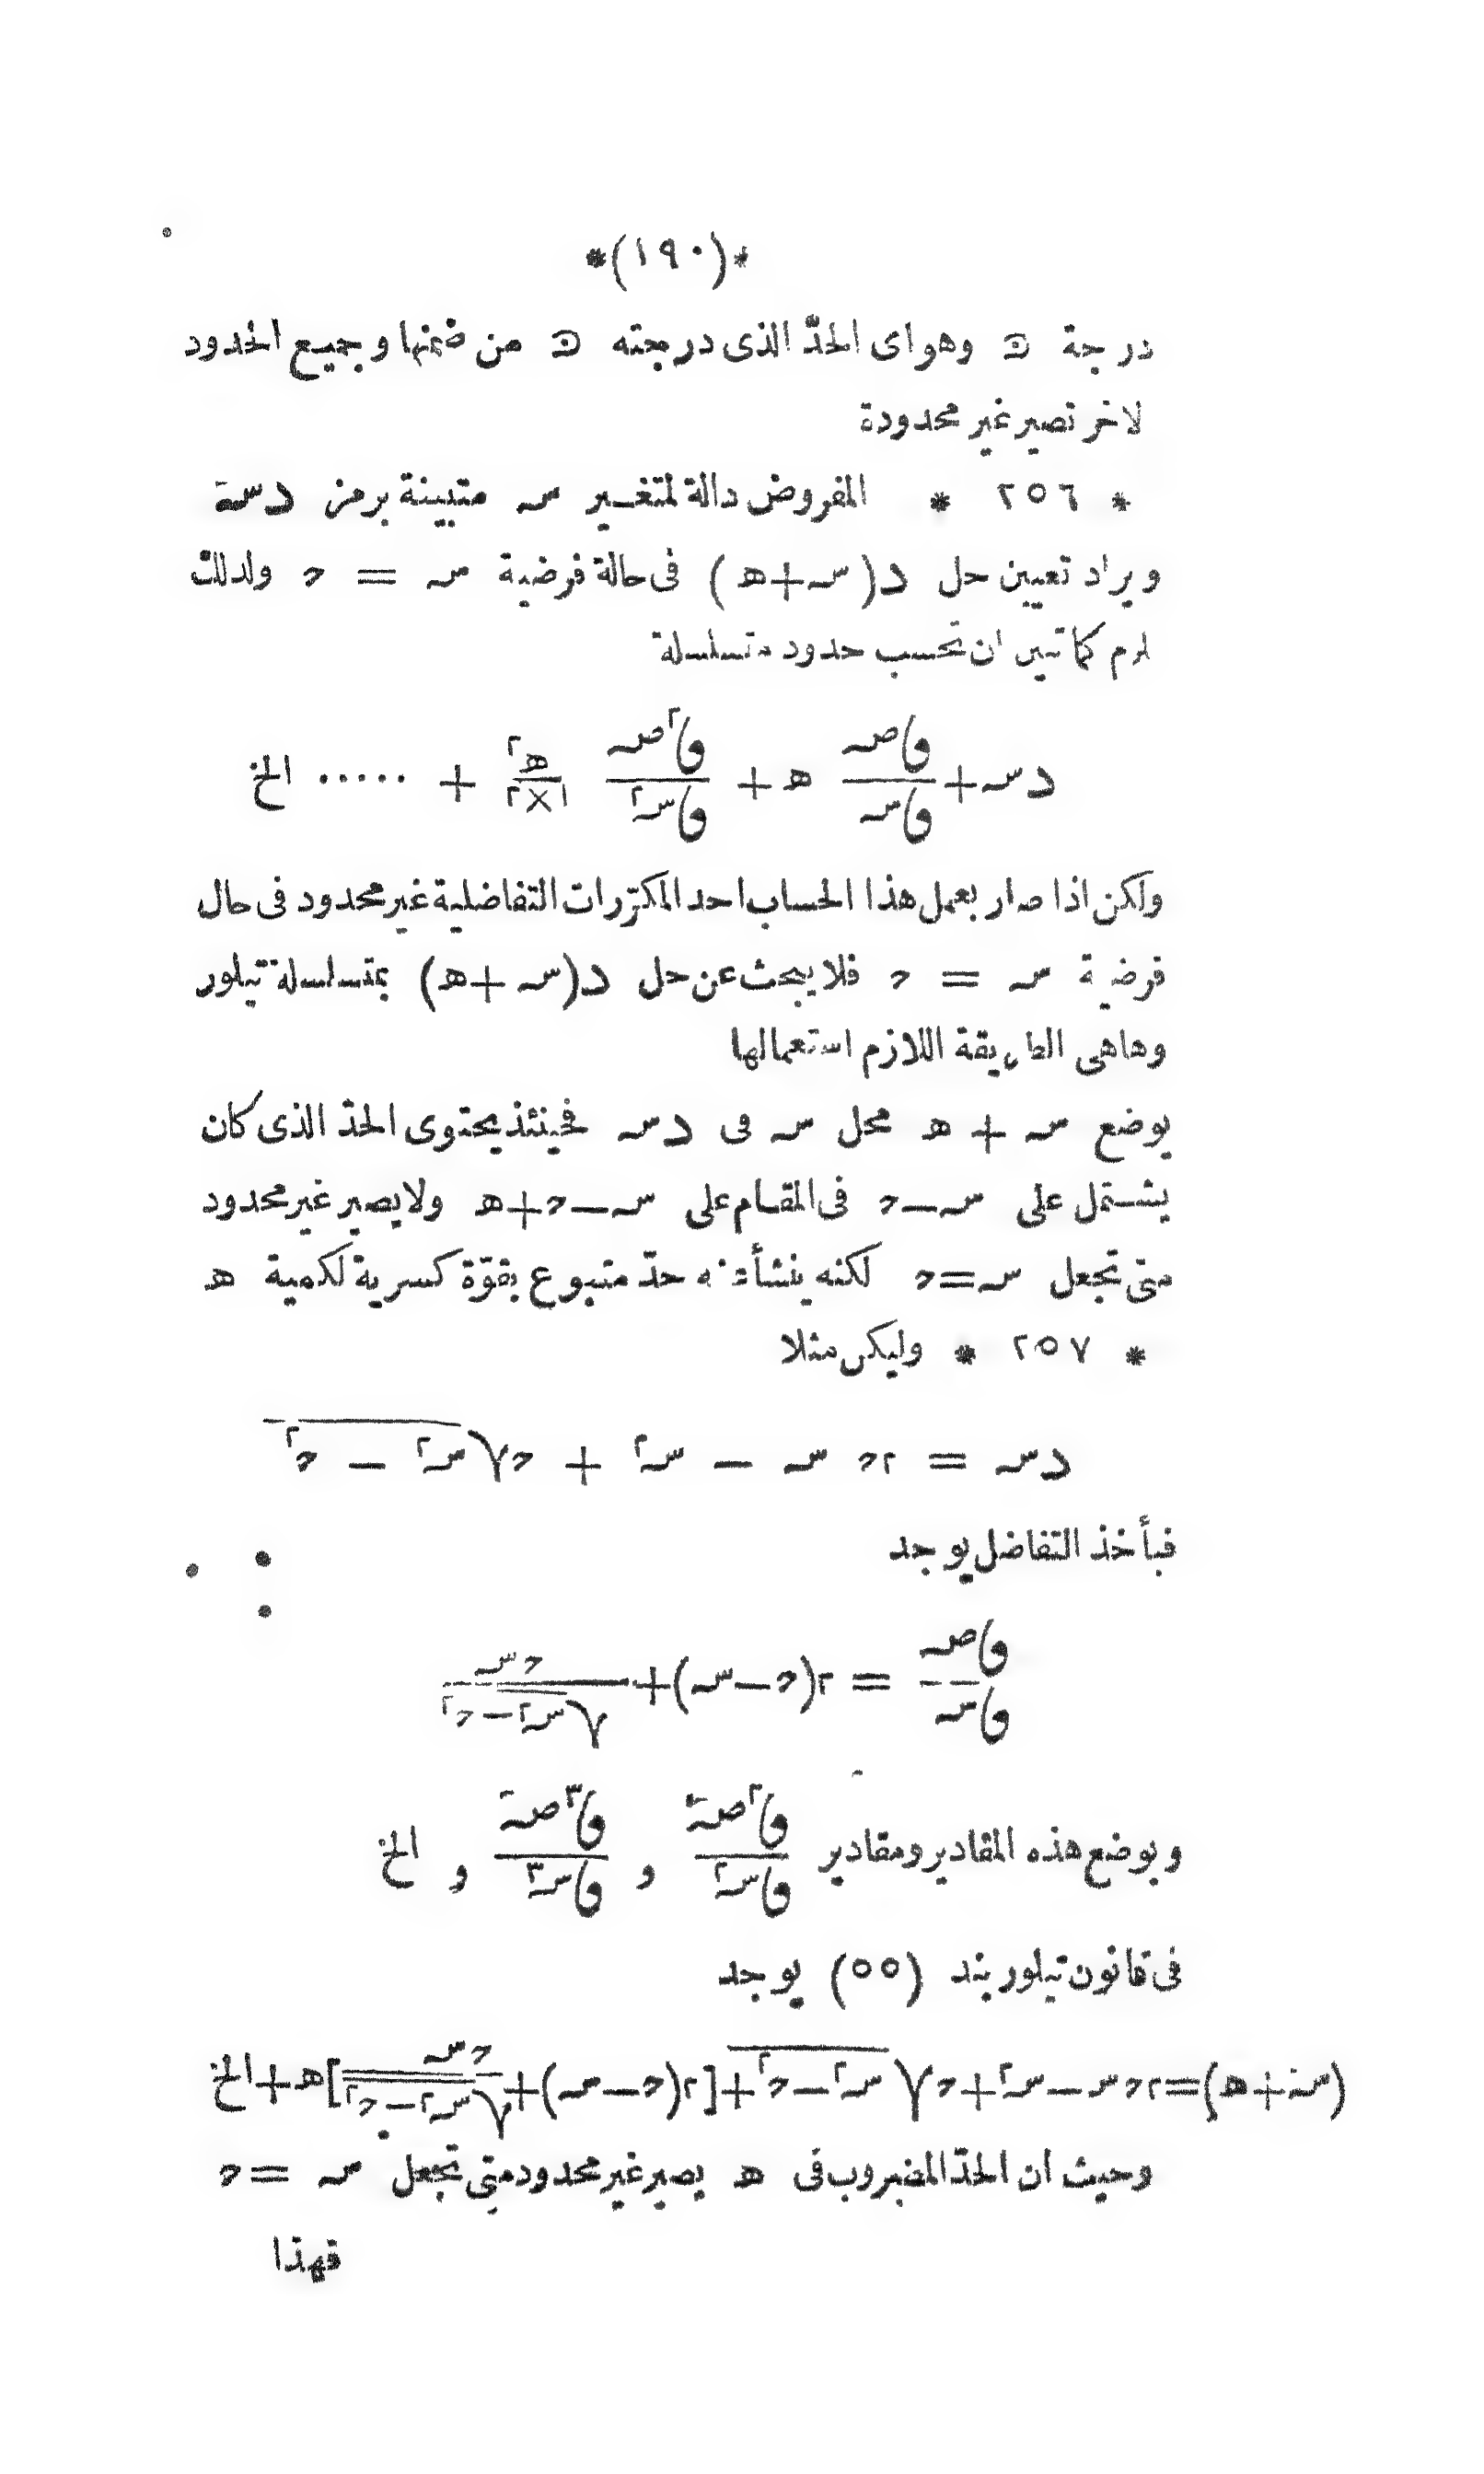 *(١٩٠)*
درجة ﮅ وهواى الحدّ الذى درجته ﮅ من ضمنها وجميع الحدود
لاخر تصير غير محدودة
* ٢٥٦ * المفروض دالة لمتغير سـ متبينة برمز دسـ
ويراد تعيين حل د(سـ+هـ) فى حالة فرضية سـ = حـ ولذلك
لزم كما تبين ان نحسب حدود متسلسلة
دسـ + فاصـ/فاسـ هـ + فا٢صـ/فاسـ٢ هـ٢/١×٢ + ..... الخ
ولكن اذا صار بعمل هذا الحساب احد المكرّرات التفاضلية غير محدود فى حال
فرضية سـ = حـ فلا يبحث عن حل د(سـ+هـ) بمتسلسلة تيلور
وهاهى الطريقة اللازم استعمالها
يوضع سـ + هـ محل سـ فى دسـ فحينئذ يحتوى الحدّ الذى كان
يشتمل على سـ−حـ فى المقام على سـ−حـ+هـ ولا يصير غير محدود
متى تجعل سـ=حـ لكنه ينشأ منه حدّ متبوع بقوّة كسرية لكمية هـ
* ٢٥٧ * وليكن مثلا
دسـ = ٢حـ سـ − سـ٢ + حـ√(سـ٢ − حـ٢)
فبأخذ التفاضل يوجد
فاصـ/فاسـ = ٢(حـ−سـ)+ حـسـ/√(سـ٢−حـ٢)
وبوضع هذه المقادير ومقادير فا٢صـ/فاسـ٢ و فا٣صـ/فاسـ٣ و الخ
فى قانون تيلور بند (٥٥) يوجد
(سـ+هـ)=٢حـسـ−سـ٢+حـ√(سـ٢−حـ٢)+[٢(حـ−سـ)+حـسـ/√(سـ٢−حـ٢)]هـ+الخ
وحيث ان الحدّ المضروب فى هـ يصير غير محدود متى تجعل سـ =حـ
فهذا